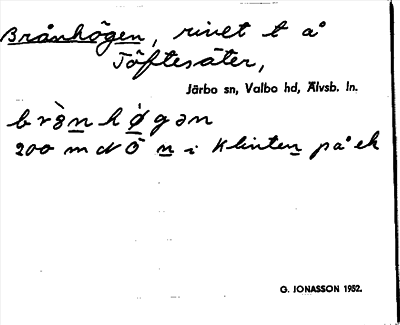 Brånhögen, rivet t å
Töftesäter,
Järbo sn, Valbo hd, Älvsb. ln.
200 m N Ö n i Klinten på ek
G. JONASSON 1952.